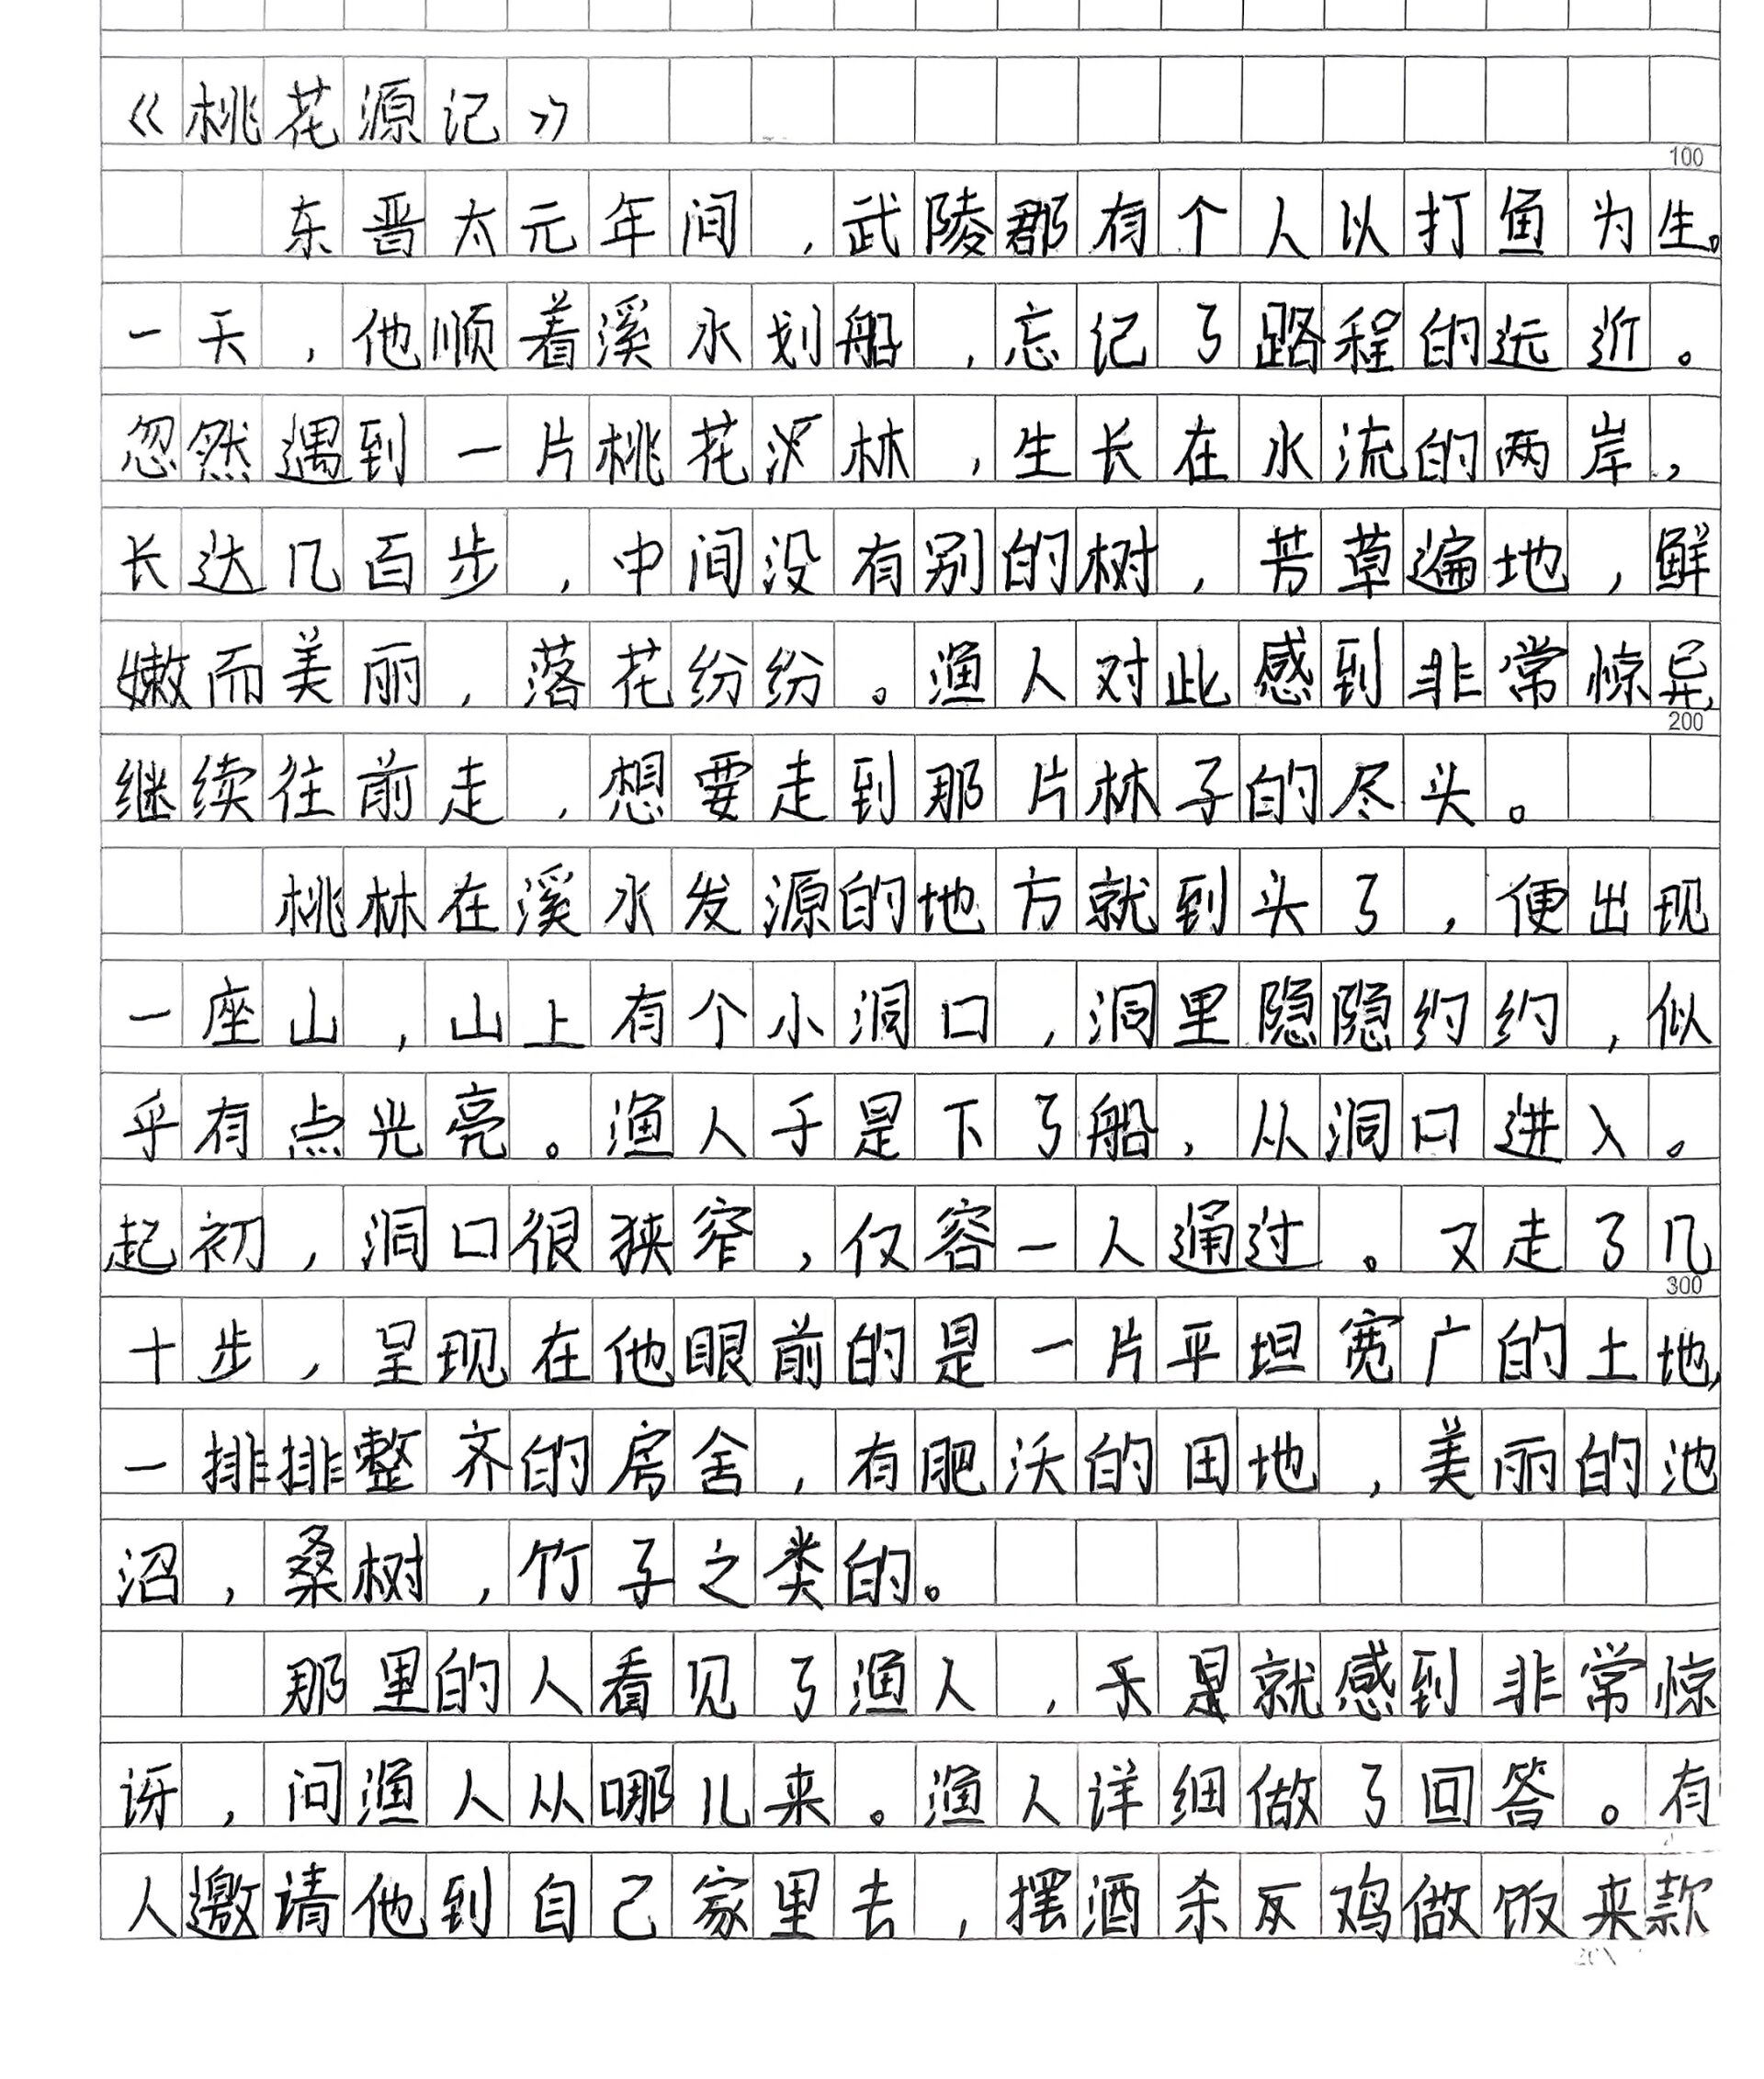 《桃花源记》
100
东晋太元年间，武陵郡有个人以打鱼为生。
一天，他顺着溪水划船，忘记了路程的远近。
忽然遇到一片桃花林，生长在水流的两岸，
长达几百步，中间没有别的树，芳草遍地，鲜
嫩而美丽，落花纷纷。渔人对此感到非常惊异，
200
继续往前走，想要走到那片林子的尽头。
桃林在溪水发源的地方就到头了，便出现
一座山，山上有个小洞口，洞里隐隐约约，似
乎有点光亮。渔人于是下了船，从洞口进入。
起初，洞口很狭窄，仅容一人通过。又走了几
300
十步，呈现在他眼前的是一片平坦宽广的土地，
一排排整齐的房舍，有肥沃的田地，美丽的池
沼，桑树，竹子之类的。
那里的人看见了渔人，于是就感到非常惊
讶，问渔人从哪儿来。渔人详细做了回答。有
人邀请他到自己家里去，摆酒杀鸡做饭来款